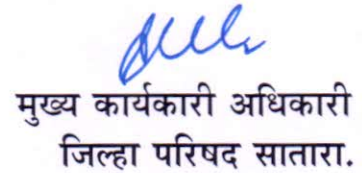 मुख्य कार्यकारी अधिकारी
जिल्हा परिषद सातारा.